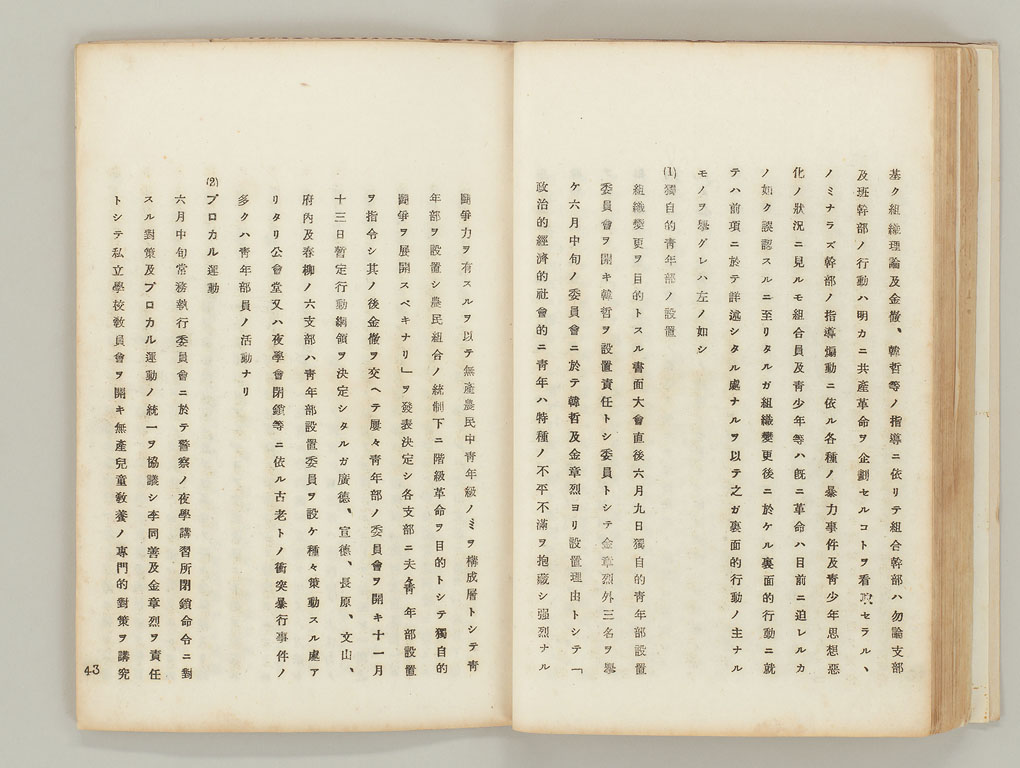 基ク組織理論及金徹、韓哲等ノ指導ニ依リテ組合幹部ハ勿論支部
及班幹部ノ行動ハ明カニ共產革命ヲ企劃セルコトヲ看取セラル、
ノミナラズ幹部ノ指導煽動ニ依ル各種ノ暴力事件及靑少年思想惡
化ノ狀況ニ見ルモ組合員及靑少年等ハ旣ニ革命ハ目前ニ迫レルカ
ノ如ク誤認スルニ至リタルガ組織變更後ニ於ケル裏面的行動ニ就
テハ前項ニ於テ詳述シタル處ナルヲ以テ之ガ裏面的行動ノ主ナル
モノヲ擧グレハ左ノ如シ
(1)獨自的靑年部ノ設置
組織變更ヲ目的トスル書面大會直後六月九日獨自的靑年部設置
委員會ヲ開キ韓哲ヲ設置責任トシ委員トシテ金章烈外三名ヲ擧
ケ六月中旬ノ委員會ニ於テ韓哲及金章烈ヨリ設置理由トシテ「
政治的經濟的社會的ニ靑年ハ特種ノ不平不滿ヲ抱藏シ强烈ナル
鬪爭力ヲ有スルヲ以テ無產農民中靑年級ノミヲ構成層トシテ靑
年部ヲ設置シ農民組合ノ統制下ニ階級革命ヲ目的トシテ獨自的
鬪爭ヲ展開スベキナリ」ヲ發表決定シ各支部ニ夫々靑年部設置
ヲ指令シ其ノ後金徹ヲ交ヘテ屢々靑年部ノ委員會ヲ開キ十一月
十三日暫定行動綱領ヲ決定シタルガ廣德、宣德、長原、文山、
府內及春柳ノ六支部ハ靑年部設置委員ヲ設ケ種々策動スル處ア
リタリ公會堂又ハ夜學會閉鎖等ニ依ル古老トノ衝突暴行事件ノ
多クハ靑年部員ノ活動ナリ
(2)プロカル運動
六月中旬常務執行委員會ニ於テ警察ノ夜學講習所閉鎖命令ニ對
スル對策及プロカル運動ノ統一ヲ協議シ李同善及金章烈ヲ責任
トシテ私立學校敎員會ヲ開キ無產兒童敎養ノ專門的對策ヲ講究
43